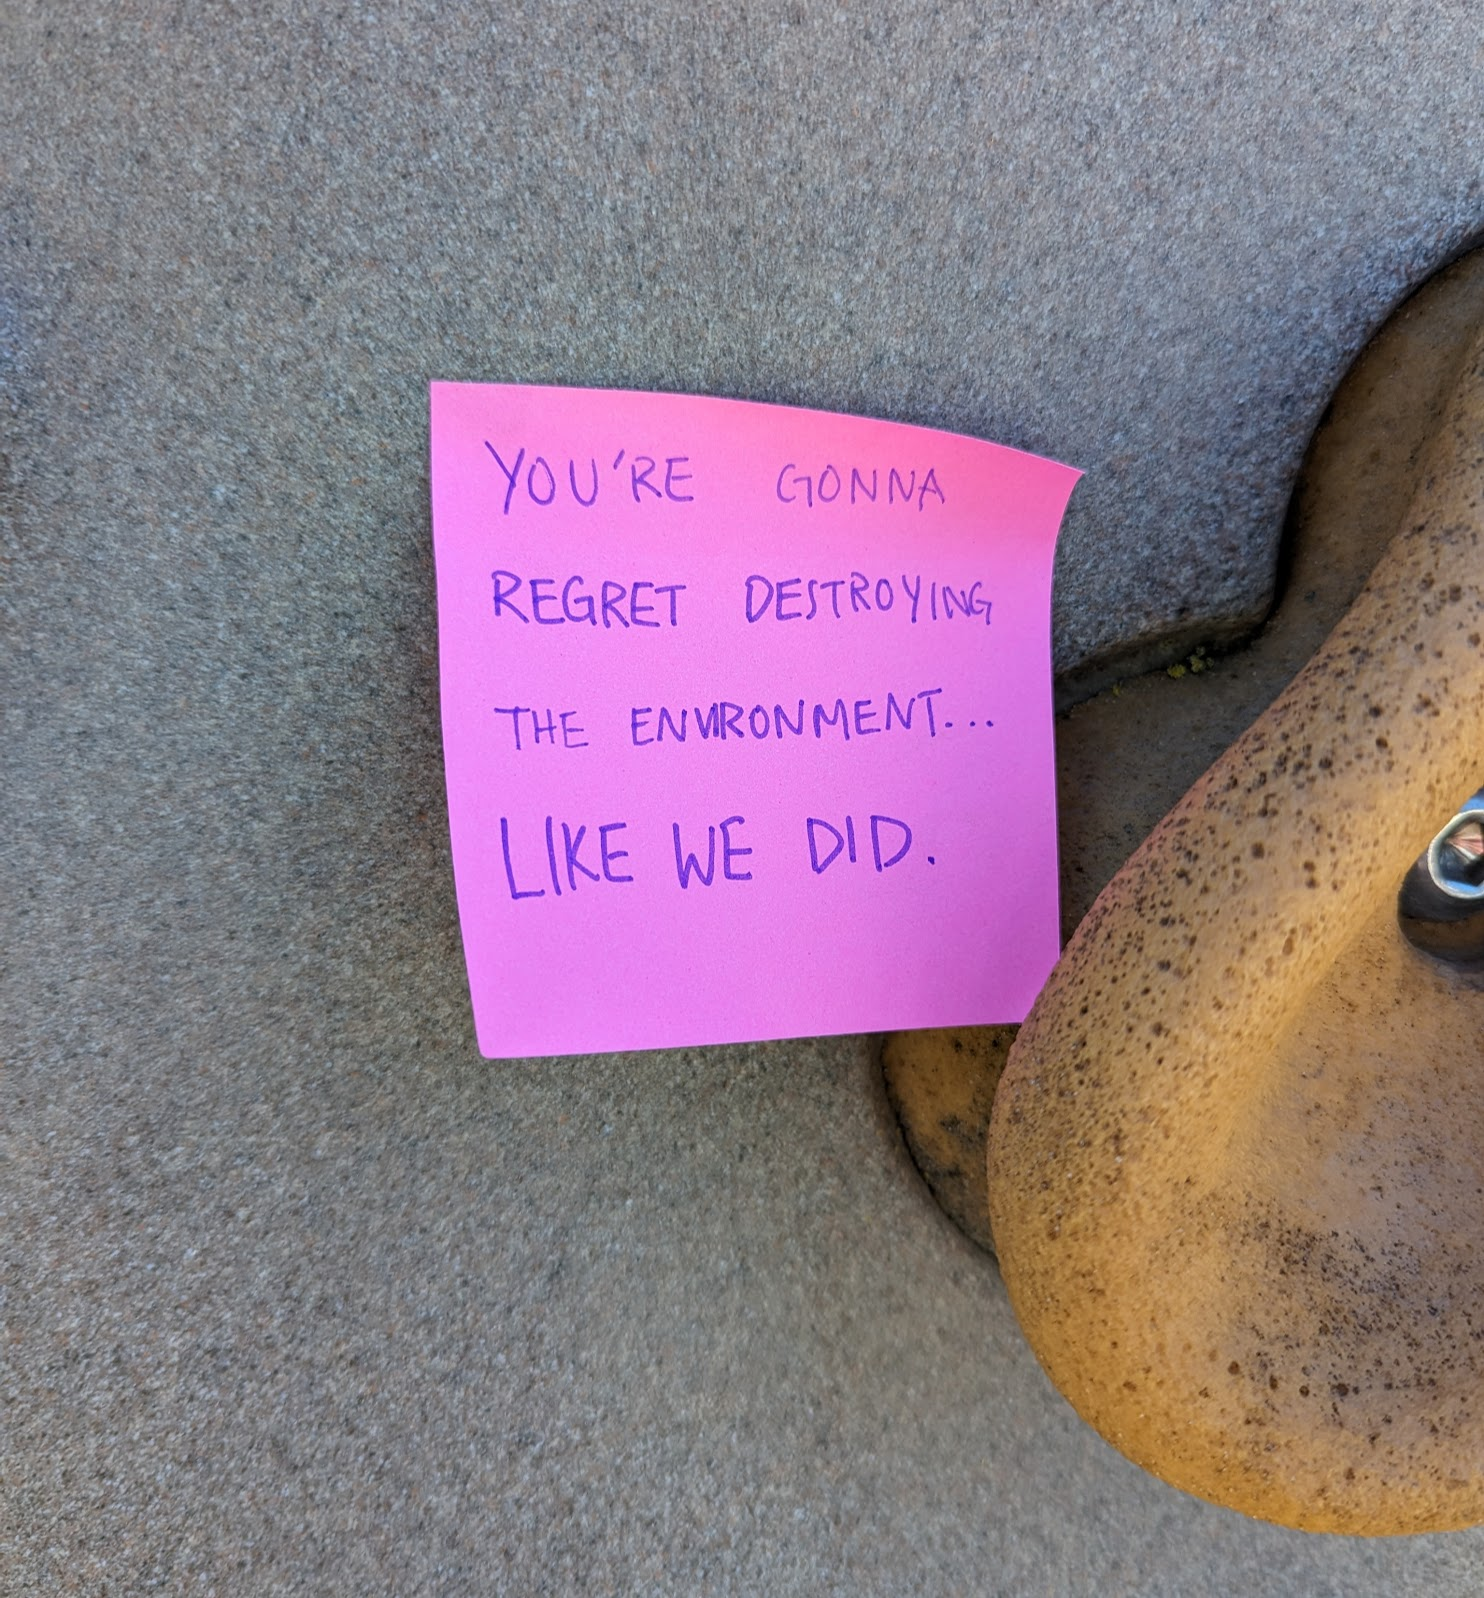 YOU'RE GONNA
REGRET DESTROYING
THE ENVIRONMENT...
LIKE WE DID.